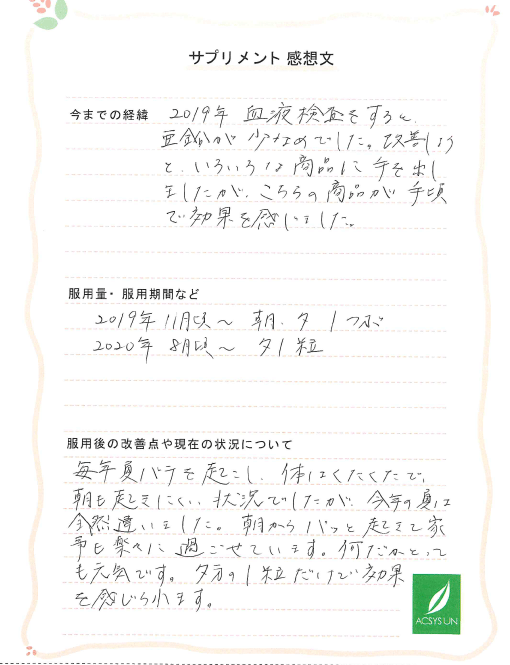 サプリメント 感想文
今までの経緯 2019年 血液検査をすると、
亜鉛が少なめでした。改善しよう
と、いろいろな商品に手を出し
ましたが、こちらの商品が手頃
で効果を感じました。
服用量・服用期間など
2019年11月頃〜 朝、夕 1つぶ
2020年 8月頃〜 夕1粒
服用後の改善点や現在の状況について
毎年夏バテを起こし、体はくたくたで、
朝も起きにくい状況でしたが、今年の夏は
全然違いました。朝からパッと起きて家
事も楽々に過ごせています。何だかとって
も元気です。夕方の1粒だけで効果
を感じられます。
ACSYS UN